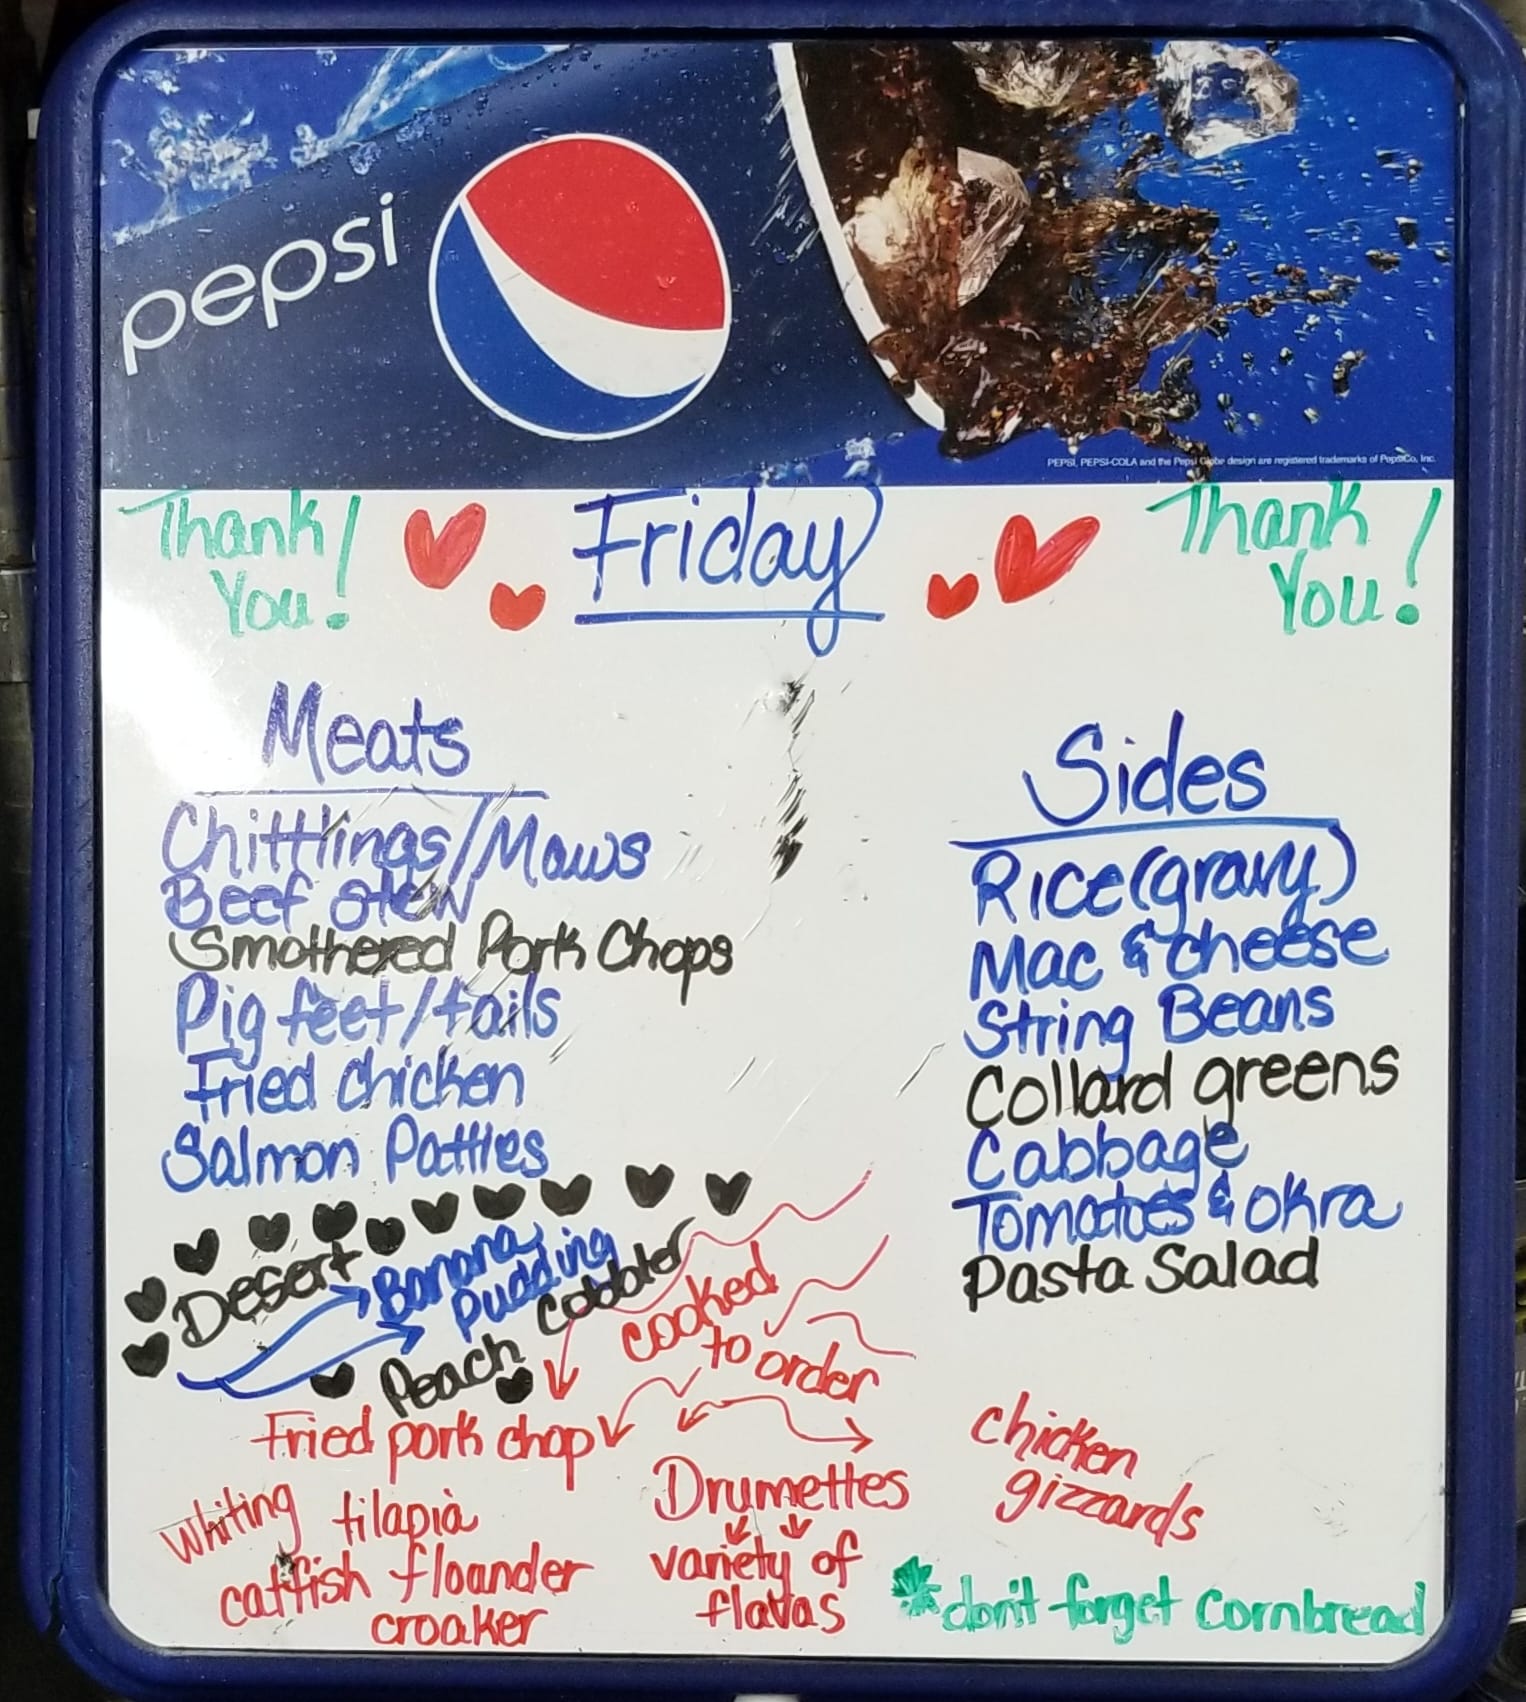 pepsi
PEPSI, PEPSI-COLA and the Pepsi Globe design are registered trademarks of PepsiCo, Inc.
Thank You!
Friday
Thank You!
Meats
Chittlings/Maws
Beef stew
Smothered Pork Chops
Pig feet/tails
Fried Chicken
Salmon Patties
Sides
Rice(gravy)
Mac & cheese
String Beans
Collard greens
Cabbage
Tomatoes & okra
Pasta Salad
Desert
Banana
Pudding
Peach Cobbler
cooked
to order
Fried pork chop
Whiting tilapia
catfish floander
croaker
Drumettes
variety of
flavas
chicken
gizzards
don't forget cornbread